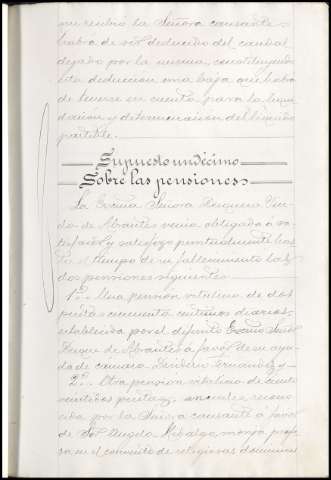 recibió la Señora causante
habrá de ser deducido del caudal
dejado por la misma, constituyendo
esta deducción una baja que habrá
de tenerse en cuenta para la liqui
dación y determinación del líquido
partible.
Supuesto undécimo
Sobre las pensiones
La Excma Señora Duquesa Viu
da de Abrantes venía obligada á sa
tisfacer y satisfizo puntualmente has
ta el tiempo de su fallecimiento las
dos pensiones siguientes
1ª. Una pensión vitalicia de dos
pesetas cincuenta céntimos diarios
establecida por el difunto Excmo Señor
Duque de Abrantes á favor de su ayu
da de cámara, Fernandez y
2ª. Otra pensión vitalicia de
pesetas, anuales recono
cida por la Señora causante á favor
de Sor Angela Hidalgo, monja profe
sa en el convento de religiosas dominicas